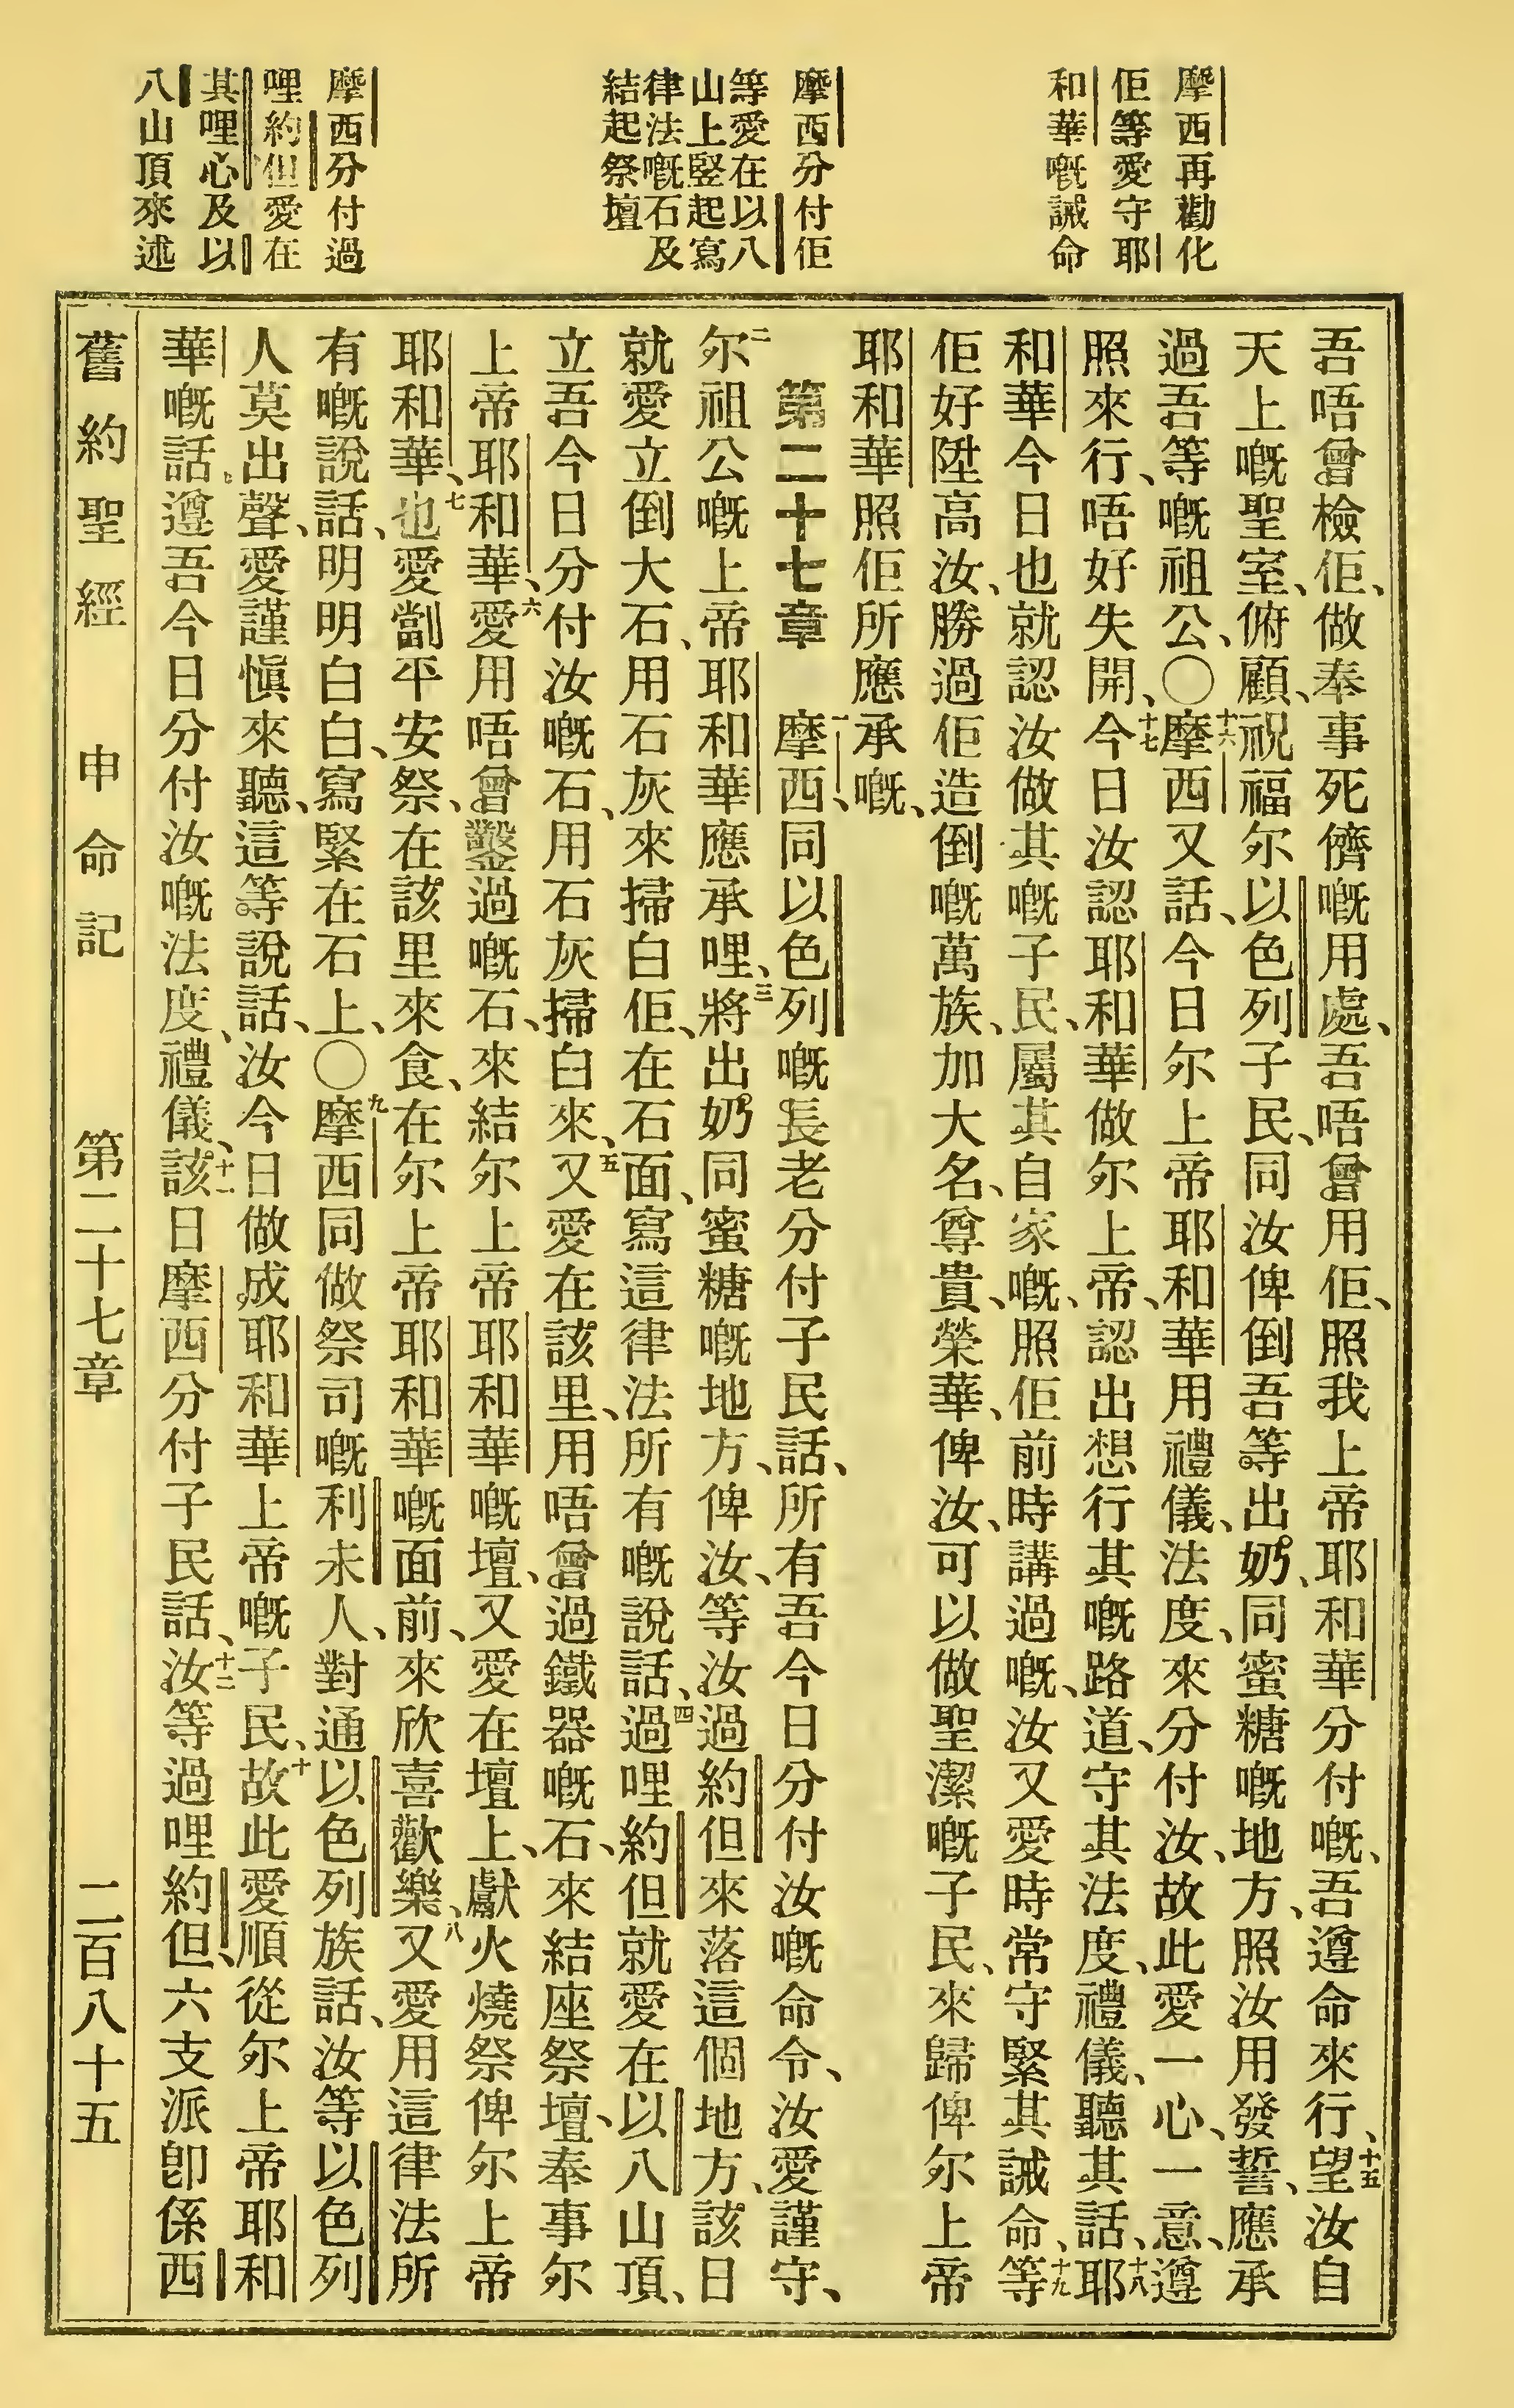 摩西再勸化
佢等愛守耶
和華嘅誡命
摩西分付佢
等愛在以八
山上竪起寫
律法嘅石及
結起祭壇
摩西分付過
哩約但愛在
其哩心及以
八山頂來述
吾唔曾檢佢、做奉事死儕嘅用處、吾唔曾用佢、照我上帝耶和華分付嘅、吾遵命來行、十五望汝自
天上嘅聖室、俯顧、祝福尔以色列子民、同汝俾倒吾等出奶、同蜜糖嘅地方、照汝用發誓、應承
過吾等嘅祖公、〇十六摩西又話、今日尔上帝耶和華用禮儀、法度、來分付汝、故此愛一心、一意、遵
照來行、唔好失開、十七今日汝認耶和華做尔上帝、認出想行其嘅路道、守其法度、禮儀、聽其話、十八耶
和華今日也就認汝做其嘅子民、屬其自家嘅、照佢前時講過嘅、汝又愛時常守緊其誡命、十九等
佢好陞高汝、勝過佢造倒嘅萬族、加大名、尊貴、榮華、俾汝、可以做聖潔嘅子民、來歸俾尔上帝
耶和華照佢所應承嘅、
第二十七章　一摩西、同以色列嘅長老分付子民話、所有吾今日分付汝嘅命令、汝愛謹守、
二尔祖公嘅上帝耶和華應承哩、三將出奶同蜜糖嘅地方、俾汝、等汝過約但來落這個地方、該日
就愛立倒大石、用石灰來掃白佢、在石面、寫這律法所有嘅說話、四過哩約但就愛在以八山頂、
立吾今日分付汝嘅石、用石灰掃白來、五又愛在該里、用唔曾過鐵器嘅石、來結座祭壇、奉事尔
上帝耶和華、六愛用唔曾鑿過嘅石、來結尔上帝耶和華嘅壇、又愛在壇上、獻火燒祭俾尔上帝
耶和華、七也愛劏平安祭、在該里來食、在尔上帝耶和華嘅面前、來欣喜歡樂、八又愛用這律法所
有嘅說話、明明白白、寫緊在石上、〇九摩西同做祭司嘅利未人、對通以色列族話、汝等以色列
人莫出聲、愛謹愼來聽、這等說話、汝今日做成耶和華上帝嘅子民、十故此愛順從尔上帝耶和
華嘅話、遵吾今日分付汝嘅法度、禮儀、十一該日摩西分付子民話、十二汝等過哩約但、六支派卽係西
舊約聖經　申命記　第二十七章　二百八十五